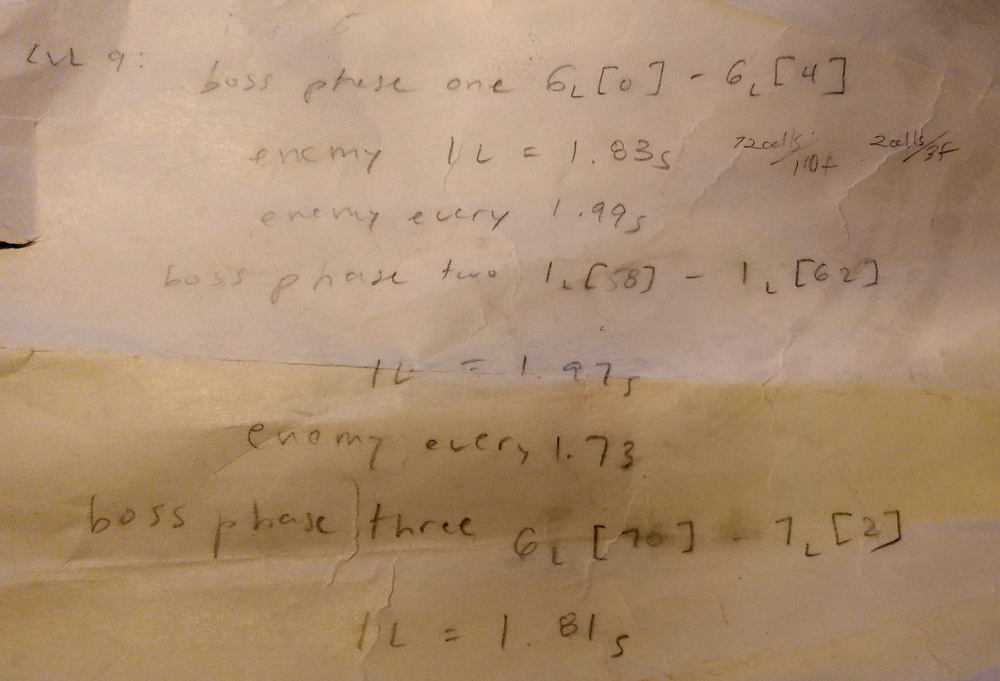 LVL 9:
boss phase one 6L[0] - 6L[4]
enemy 1L = 1.83s 72cells/110f 2cells/3f
enemy every 1.99s
boss phase two 1L[58] - 1L[62]
1L = 1.97s
enemy every 1.73
boss phase three 6L[70] - 7L[2]
1L = 1.81s